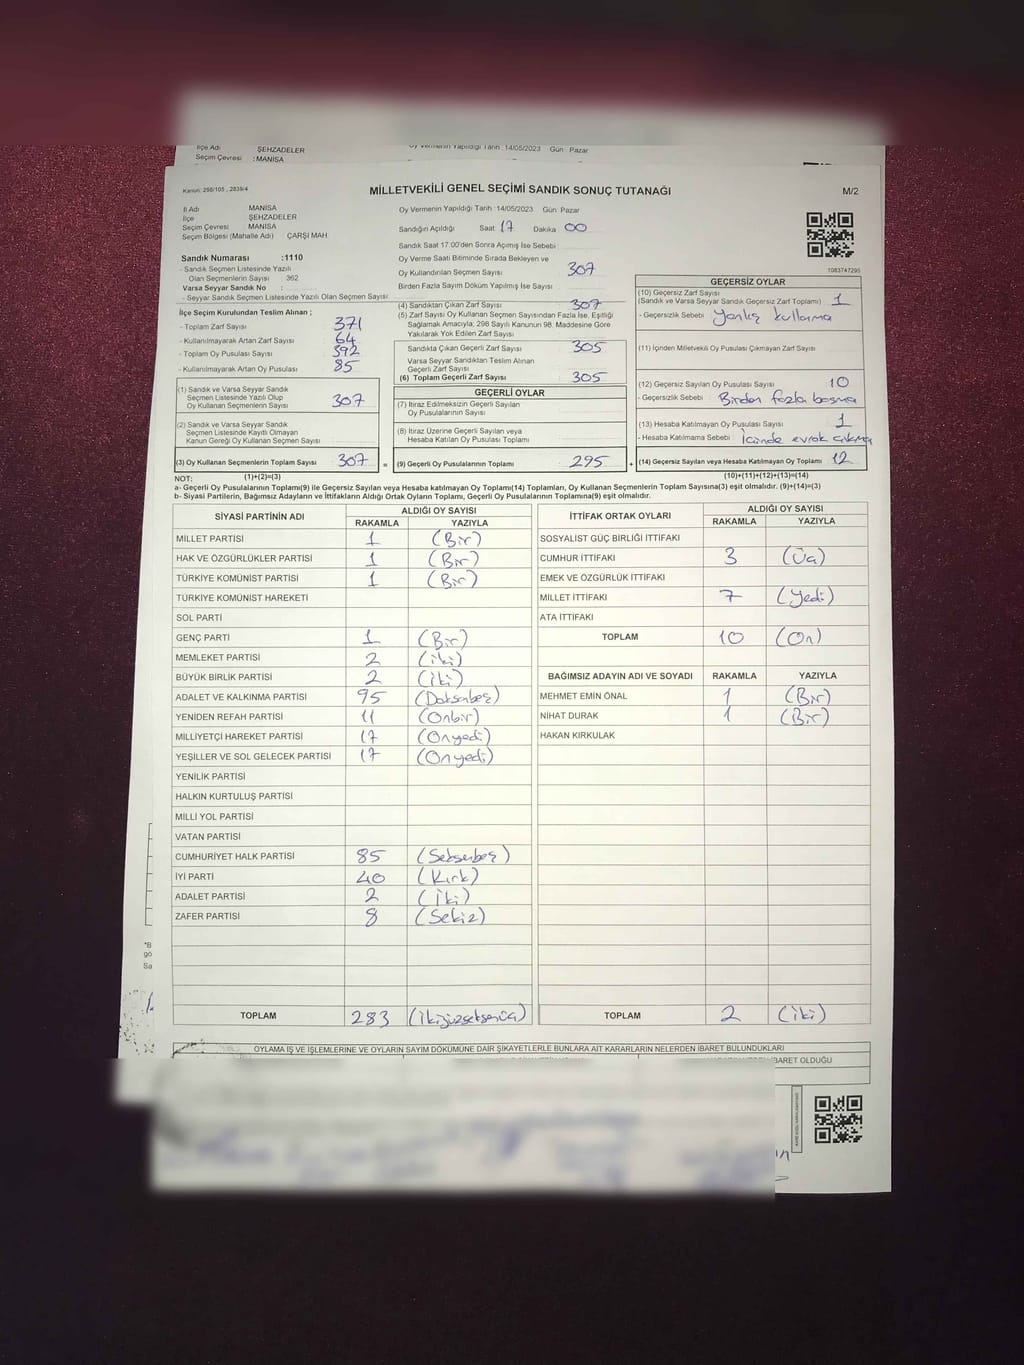 İlçe Adı ŞEHZADELER Oy Vermenin Yapıldığı Tarih :14/05/2023 Gün : Pazar
Seçim Çevresi : MANİSA
Kanun: 298/105 , 2839/4
MİLLETVEKİLİ GENEL SEÇİMİ SANDIK SONUÇ TUTANAĞI
M/2
İl Adı MANİSA
İlçe ŞEHZADELER
Seçim Çevresi MANİSA
Seçim Bölgesi (Mahalle Adı) ÇARŞI MAH
Sandık Numarası :1110
- Sandık Seçmen Listesinde Yazılı
Olan Seçmenlerin Sayısı : 362
Varsa Seyyar Sandık No :
- Seyyar Sandık Seçmen Listesinde Yazılı Olan Seçmen Sayısı:
İlçe Seçim Kurulundan Teslim Alınan ;
- Toplam Zarf Sayısı 371
- Kullanılmayarak Artan Zarf Sayısı 64
- Toplam Oy Pusulası Sayısı 392
- Kullanılmayarak Artan Oy Pusulası 85
(1) Sandık ve Varsa Seyyar Sandık
Seçmen Listesinde Yazılı Olup
Oy Kullanan Seçmenlerin Sayısı 307
(2) Sandık ve Varsa Seyyar Sandık
Seçmen Listesinde Kayıtlı Olmayan
Kanun Gereği Oy Kullanan Seçmen Sayısı
(3) Oy Kullanan Seçmenlerin Toplam Sayısı 307 =
Oy Vermenin Yapıldığı Tarih :14/05/2023 Gün: Pazar
Sandığın Açıldığı Saat 17 Dakika 00
Sandık Saat 17.00'den Sonra Açılmış İse Sebebi :
Oy Verme Saati Bitiminde Sırada Bekleyen ve
Oy Kullandırılan Seçmen Sayısı 307
Birden Fazla Sayım Döküm Yapılmış İse Sayısı :
(4) Sandıktan Çıkan Zarf Sayısı 307
(5) Zarf Sayısı Oy Kullanan Seçmen Sayısından Fazla İse, Eşitliği
Sağlamak Amacıyla; 298 Sayılı Kanunun 98. Maddesine Göre
Yakılarak Yok Edilen Zarf Sayısı
Sandıkta Çıkan Geçerli Zarf Sayısı 305
Varsa Seyyar Sandıktan Teslim Alınan
Geçerli Zarf Sayısı
(6) Toplam Geçerli Zarf Sayısı 305
GEÇERLİ OYLAR
(7) İtiraz Edilmeksizin Geçerli Sayılan
Oy Pusulalarının Sayısı
(8) İtiraz Üzerine Geçerli Sayılan veya
Hesaba Katılan Oy Pusulası Toplamı
(9) Geçerli Oy Pusulalarının Toplamı 295 +
1083747295
GEÇERSİZ OYLAR
(10) Geçersiz Zarf Sayısı
(Sandık ve Varsa Seyyar Sandık Geçersiz Zarf Toplamı) 1
- Geçersizlik Sebebi Yanlış kullanma
(11) İçinden Milletvekili Oy Pusulası Çıkmayan Zarf Sayısı
(12) Geçersiz Sayılan Oy Pusulası Sayısı 10
- Geçersizlik Sebebi Birden fazla basma
(13) Hesaba Katılmayan Oy Pusulası Sayısı 1
- Hesaba Katılmama Sebebi İçinde evrak çıkma
(14) Geçersiz Sayılan veya Hesaba Katılmayan Oy Toplamı 12
NOT: (1)+(2)=(3) (10)+(11)+(12)+(13)=(14)
a- Geçerli Oy Pusulalarının Toplamı(9) ile Geçersiz Sayılan veya Hesaba Katılmayan Oy Toplamı(14) Toplamları, Oy Kullanan Seçmenlerin Toplam Sayısına(3) eşit olmalıdır. (9)+(14)=(3)
b- Siyasi Partilerin, Bağımsız Adayların ve İttifakların Aldığı Ortak Oyların Toplamı, Geçerli Oy Pusulalarının Toplamına(9) eşit olmalıdır.
SİYASİ PARTİNİN ADI ALDIĞI OY SAYISI
RAKAMLA YAZIYLA
MİLLET PARTİSİ 1 (Bir)
HAK VE ÖZGÜRLÜKLER PARTİSİ 1 (Bir)
TÜRKİYE KOMÜNİST PARTİSİ 1 (Bir)
TÜRKİYE KOMÜNİST HAREKETİ
SOL PARTİ
GENÇ PARTİ 1 (Bir)
MEMLEKET PARTİSİ 2 (iki)
BÜYÜK BİRLİK PARTİSİ 2 (iki)
ADALET VE KALKINMA PARTİSİ 95 (Doksanbeş)
YENİDEN REFAH PARTİSİ 11 (Onbir)
MİLLİYETÇİ HAREKET PARTİSİ 17 (Onyedi)
YEŞİLLER VE SOL GELECEK PARTİSİ 17 (Onyedi)
YENİLİK PARTİSİ
HALKIN KURTULUŞ PARTİSİ
MİLLİ YOL PARTİSİ
VATAN PARTİSİ
CUMHURİYET HALK PARTİSİ 85 (Seksenbeş)
İYİ PARTİ 40 (Kırk)
ADALET PARTİSİ 2 (İki)
ZAFER PARTİSİ 8 (Sekiz)
TOPLAM 283 (İkiyüzseksenüç)
İTTİFAK ORTAK OYLARI ALDIĞI OY SAYISI
RAKAMLA YAZIYLA
SOSYALİST GÜÇ BİRLİĞİ İTTİFAKI
CUMHUR İTTİFAKI 3 (Üç)
EMEK VE ÖZGÜRLÜK İTTİFAKI
MİLLET İTTİFAKI 7 (Yedi)
ATA İTTİFAKI
TOPLAM 10 (On)
BAĞIMSIZ ADAYIN ADI VE SOYADI RAKAMLA YAZIYLA
MEHMET EMİN ÖNAL 1 (Bir)
NİHAT DURAK 1 (Bir)
HAKAN KIRKULAK
TOPLAM 2 (iki)
*B
gö
Sa
OYLAMA İŞ VE İŞLEMLERİNE VE OYLARIN SAYIM DÖKÜMÜNE DAİR ŞİKAYETLERLE BUNLARA AİT KARARLARIN NELERDEN İBARET BULUNDUKLARI
BARET OLDUĞU